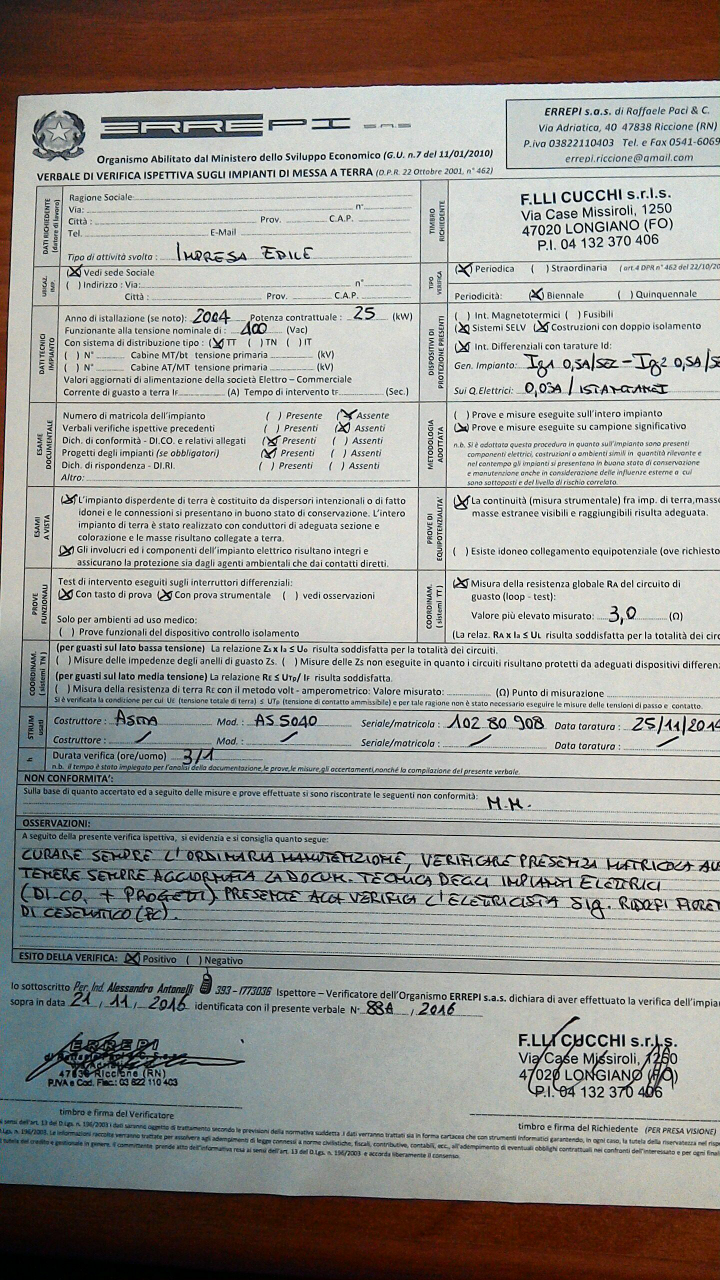 ERREPI S.A.S.
ERREPI s.a.s. di Raffaele Paci & C.
Via Adriatica, 40 47838 Riccione (RN)
P.iva 03822110403 Tel. e Fax 0541-6069
errepi.riccione@gmail.com
Organismo Abilitato dal Ministero dello Sviluppo Economico (G.U. n.7 del 11/01/2010)
VERBALE DI VERIFICA ISPETTIVA SUGLI IMPIANTI DI MESSA A TERRA (D.P.R. 22 Ottobre 2001, n° 462)
DATI RICHIEDENTE (datore di lavoro)
Ragione Sociale
Via: n°
Città : Prov. C.A.P.
Tel. E-Mail
Tipo di attività svolta : IMPRESA EDILE
TIMBRO RICHIEDENTE
F.LLI CUCCHI s.r.l.s.
Via Case Missiroli, 1250
47020 LONGIANO (FO)
P.I. 04 132 370 406
UBICAZ. IMP.
(X) Vedi sede Sociale
( ) Indirizzo : Via: n°
Città : Prov. C.A.P.
TIPO VERIFICA
(X) Periodica ( ) Straordinaria (art.4 DPR n°462 del 22/10/20
Periodicità: (X) Biennale ( ) Quinquennale
DATI TECNICI IMPIANTO
Anno di istallazione (se noto): 2004 Potenza contrattuale : 25 (kW)
Funzionante alla tensione nominale di : 400 (Vac)
Con sistema di distribuzione tipo : (X) TT ( ) TN ( ) IT
( ) N° Cabine MT/bt tensione primaria (kV)
( ) N° Cabine AT/MT tensione primaria (kV)
Valori aggiornati di alimentazione della società Elettro – Commerciale
Corrente di guasto a terra IF (A) Tempo di intervento tF (Sec.)
DISPOSITIVI DI PROTEZIONE PRESENTI
( ) Int. Magnetotermici ( ) Fusibili
(X) Sistemi SELV (X) Costruzioni con doppio isolamento
(X) Int. Differenziali con tarature Id:
Gen. Impianto: Ig1 0,5A/SEZ – Ig2 0,5A/SE
Sui Q.Elettrici: 0,03A / ISTANTANEI
ESAME DOCUMENTALE
Numero di matricola dell'impianto ( ) Presente (X) Assente
Verbali verifiche ispettive precedenti ( ) Presenti (X) Assenti
Dich. di conformità - DI.CO. e relativi allegati (X) Presenti ( ) Assenti
Progetti degli impianti (se obbligatori) (X) Presenti ( ) Assenti
Dich. di rispondenza - DI.RI. ( ) Presenti ( ) Assenti
Altro:
METODOLOGIA ADOTTATA
( ) Prove e misure eseguite sull'intero impianto
(X) Prove e misure eseguite su campione significativo
n.b. Si è adottata questa procedura in quanto sull'impianto sono presenti
componenti elettrici, costruzioni o ambienti simili in quantità rilevante e
nel contempo gli impianti si presentano in buono stato di conservazione
e manutenzione anche in considerazione delle influenze esterne a cui
sono sottoposti e del livello di rischio correlato.
ESAMI A VISTA
(X) L'impianto disperdente di terra è costituito da dispersori intenzionali o di fatto
idonei e le connessioni si presentano in buono stato di conservazione. L'intero
impianto di terra è stato realizzato con conduttori di adeguata sezione e
colorazione e le masse risultano collegate a terra.
(X) Gli involucri ed i componenti dell'impianto elettrico risultano integri e
assicurano la protezione sia dagli agenti ambientali che dai contatti diretti.
PROVE DI EQUIPOTENZIALITA'
(X) La continuità (misura strumentale) fra imp. di terra,masse
masse estranee visibili e raggiungibili risulta adeguata.
( ) Esiste idoneo collegamento equipotenziale (ove richiesto
PROVE FUNZIONALI
Test di intervento eseguiti sugli interruttori differenziali:
(X) Con tasto di prova (X) Con prova strumentale ( ) vedi osservazioni
Solo per ambienti ad uso medico:
( ) Prove funzionali del dispositivo controllo isolamento
COORDINAM. (sistemi TT)
(X) Misura della resistenza globale RA del circuito di
guasto (loop - test):
Valore più elevato misurato: 3,0 (Ω)
(La relaz. RA x Ia ≤ UL risulta soddisfatta per la totalità dei circ
COORDINAM. (sistemi TN)
(per guasti sul lato bassa tensione) La relazione Zs x Ia ≤ Uo risulta soddisfatta per la totalità dei circuiti.
( ) Misure delle impedenze degli anelli di guasto Zs. ( ) Misure delle Zs non eseguite in quanto i circuiti risultano protetti da adeguati dispositivi differen
(per guasti sul lato media tensione) La relazione RE ≤ UTP/ IF risulta soddisfatta.
( ) Misura della resistenza di terra RE con il metodo volt - amperometrico: Valore misurato: (Ω) Punto di misurazione
Si è verificata la condizione per cui UE (tensione totale di terra) ≤ UTP (tensione di contatto ammissibile) e per tale ragione non è stato necessario eseguire le misure delle tensioni di passo e contatto.
STRUM. usati
Costruttore : ASITA Mod. : AS 5040 Seriale/matricola : 102 80 908 Data taratura : 25/11/2014
Costruttore : / Mod. : / Seriale/matricola : / Data taratura : /
h
Durata verifica (ore/uomo) 3/1
n.b. il tempo è stato impiegato per l'analisi della documentazione,le prove,le misure,gli accertamenti,nonché la compilazione del presente verbale.
NON CONFORMITA':
Sulla base di quanto accertato ed a seguito delle misure e prove effettuate si sono riscontrate le seguenti non conformità: N.N.
OSSERVAZIONI:
A seguito della presente verifica ispettiva, si evidenzia e si consiglia quanto segue:
CURARE SEMPRE L'ORDINARIA MANUTENZIONE, VERIFICARE PRESENZA MATRICOLA
TENERE SEMPRE AGGIORNATA LA DOCUM. TECNICA DEGLI IMPIANTI ELETTRICI
(DI.CO. + PROGETTI). PRESENTE ALLA VERIFICA L'ELETRICISTA Sig. RIDOLFI
DI CESENATICO (FC).
ESITO DELLA VERIFICA: (X) Positivo ( ) Negativo
Io sottoscritto Per. Ind. Alessandro Antonelli 393 -1773036 Ispettore – Verificatore dell'Organismo ERREPI s.a.s. dichiara di aver effettuato la verifica dell'impia
sopra in data 21 / 11 / 2016 identificata con il presente verbale N° 88A / 2016
ERREPI
47838 Riccione (RN)
P.IVA e Cod. Fisc.: 03 822 110 403
F.LLI CUCCHI s.r.l.s.
Via Case Missiroli, 1250
47020 LONGIANO (FO)
P.I. 04 132 370 406
timbro e firma del Verificatore
timbro e firma del Richiedente (PER PRESA VISIONE)